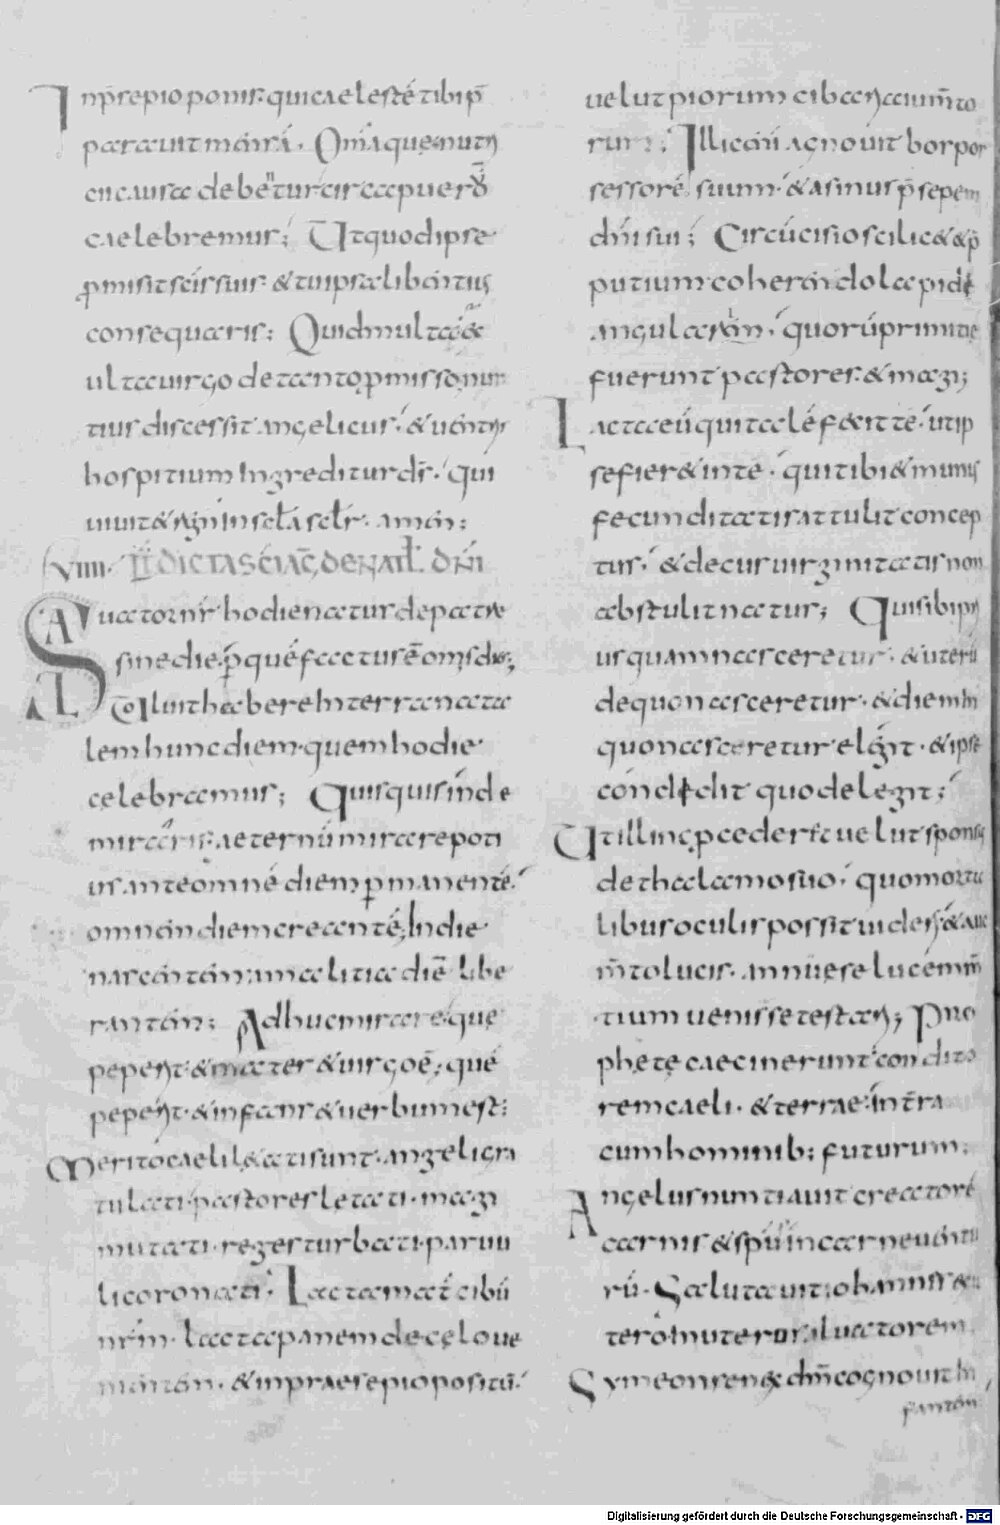 In p̄sepio ponis. qui caelesté tibi p̄
parauit mensā. Omīa que nutri
cis causa debentur circa puerū
caelebremus; Ut quod ipse
promisit scīs suis. & tu ipsa libentius
consequaris; Quid multa &
ultra uirgo de tanto promisso nun
tius discessit angelicus. & uentris
hospitium Ingreditur dr̄. qui
uiuit & regn̄ In scła scłr. amen;
VIIII. IT̄ DICTA SC̄I AUḠ DE NATL̄ DN̄I
Saluator nr̄ hodie natur de patre
sine die. per quē factus ē omīs dies;
Uoluit habere In terra nata
lem hunc diem. quem hodie
celebramus; Quisquis inde
miraris. aeternū mirare poti
us. ante omnē diem permanenté.
omnen diem creanté; In die
nascentem. a malitia diē libe
rantem; Adhuc mirare. que
peperit. & mater & uirgo ē; qué
peperit. & infans & uerbum est;
Merito caeli locuti sunt. angeli gra
tulati. pastores letati. magi
mutati. reges turbati. paruu
li coronati. Lacta mater cibū
nrm̄. lacta panem de celo ue
nientem. & in praesepio positū.
uelut piorum cibaria iument̄o
rum; Illic enī agnouit bos pos
sessorē suum. & asinus p̄sepem
dn̄i sui; Circūcisio scilic& & p̄
putium coherendo lapidi
angulari. quorū primitie
fuerunt pastores. & magi;
Lacta eū qui talē fecit té. ut ip
se fier& in te. qui tibi & munus
fecunditatis attulit concep
tus. & decus uirginitatis non
abstulit natus; Qui sibi pri
usquam nasceretur. & uterū
de quo nasceretur. & diem In
quo nasceretur elegit. & ipse
condidit quod elegit;
Ut illinc procederet uelut sponsus
de thalamo suo. quo morta
libus oculis possit uideri. & au
m̄to lucis. annuę se lucem nun
tium uenisse testari; Pro
phetę caecinerunt condito
rem caeli. & terrae. in t̄ra
cum hominib; futurum;
Angelus nuntiauit creatoré
carnis & spūs in carne uentu
rū. Salutauit iohannis ex
utero In utero saluatorem.
Symeon senex dn̄m cognouit In
fantem
Digitalisierung gefördert durch die Deutsche Forschungsgemeinschaft - DFG